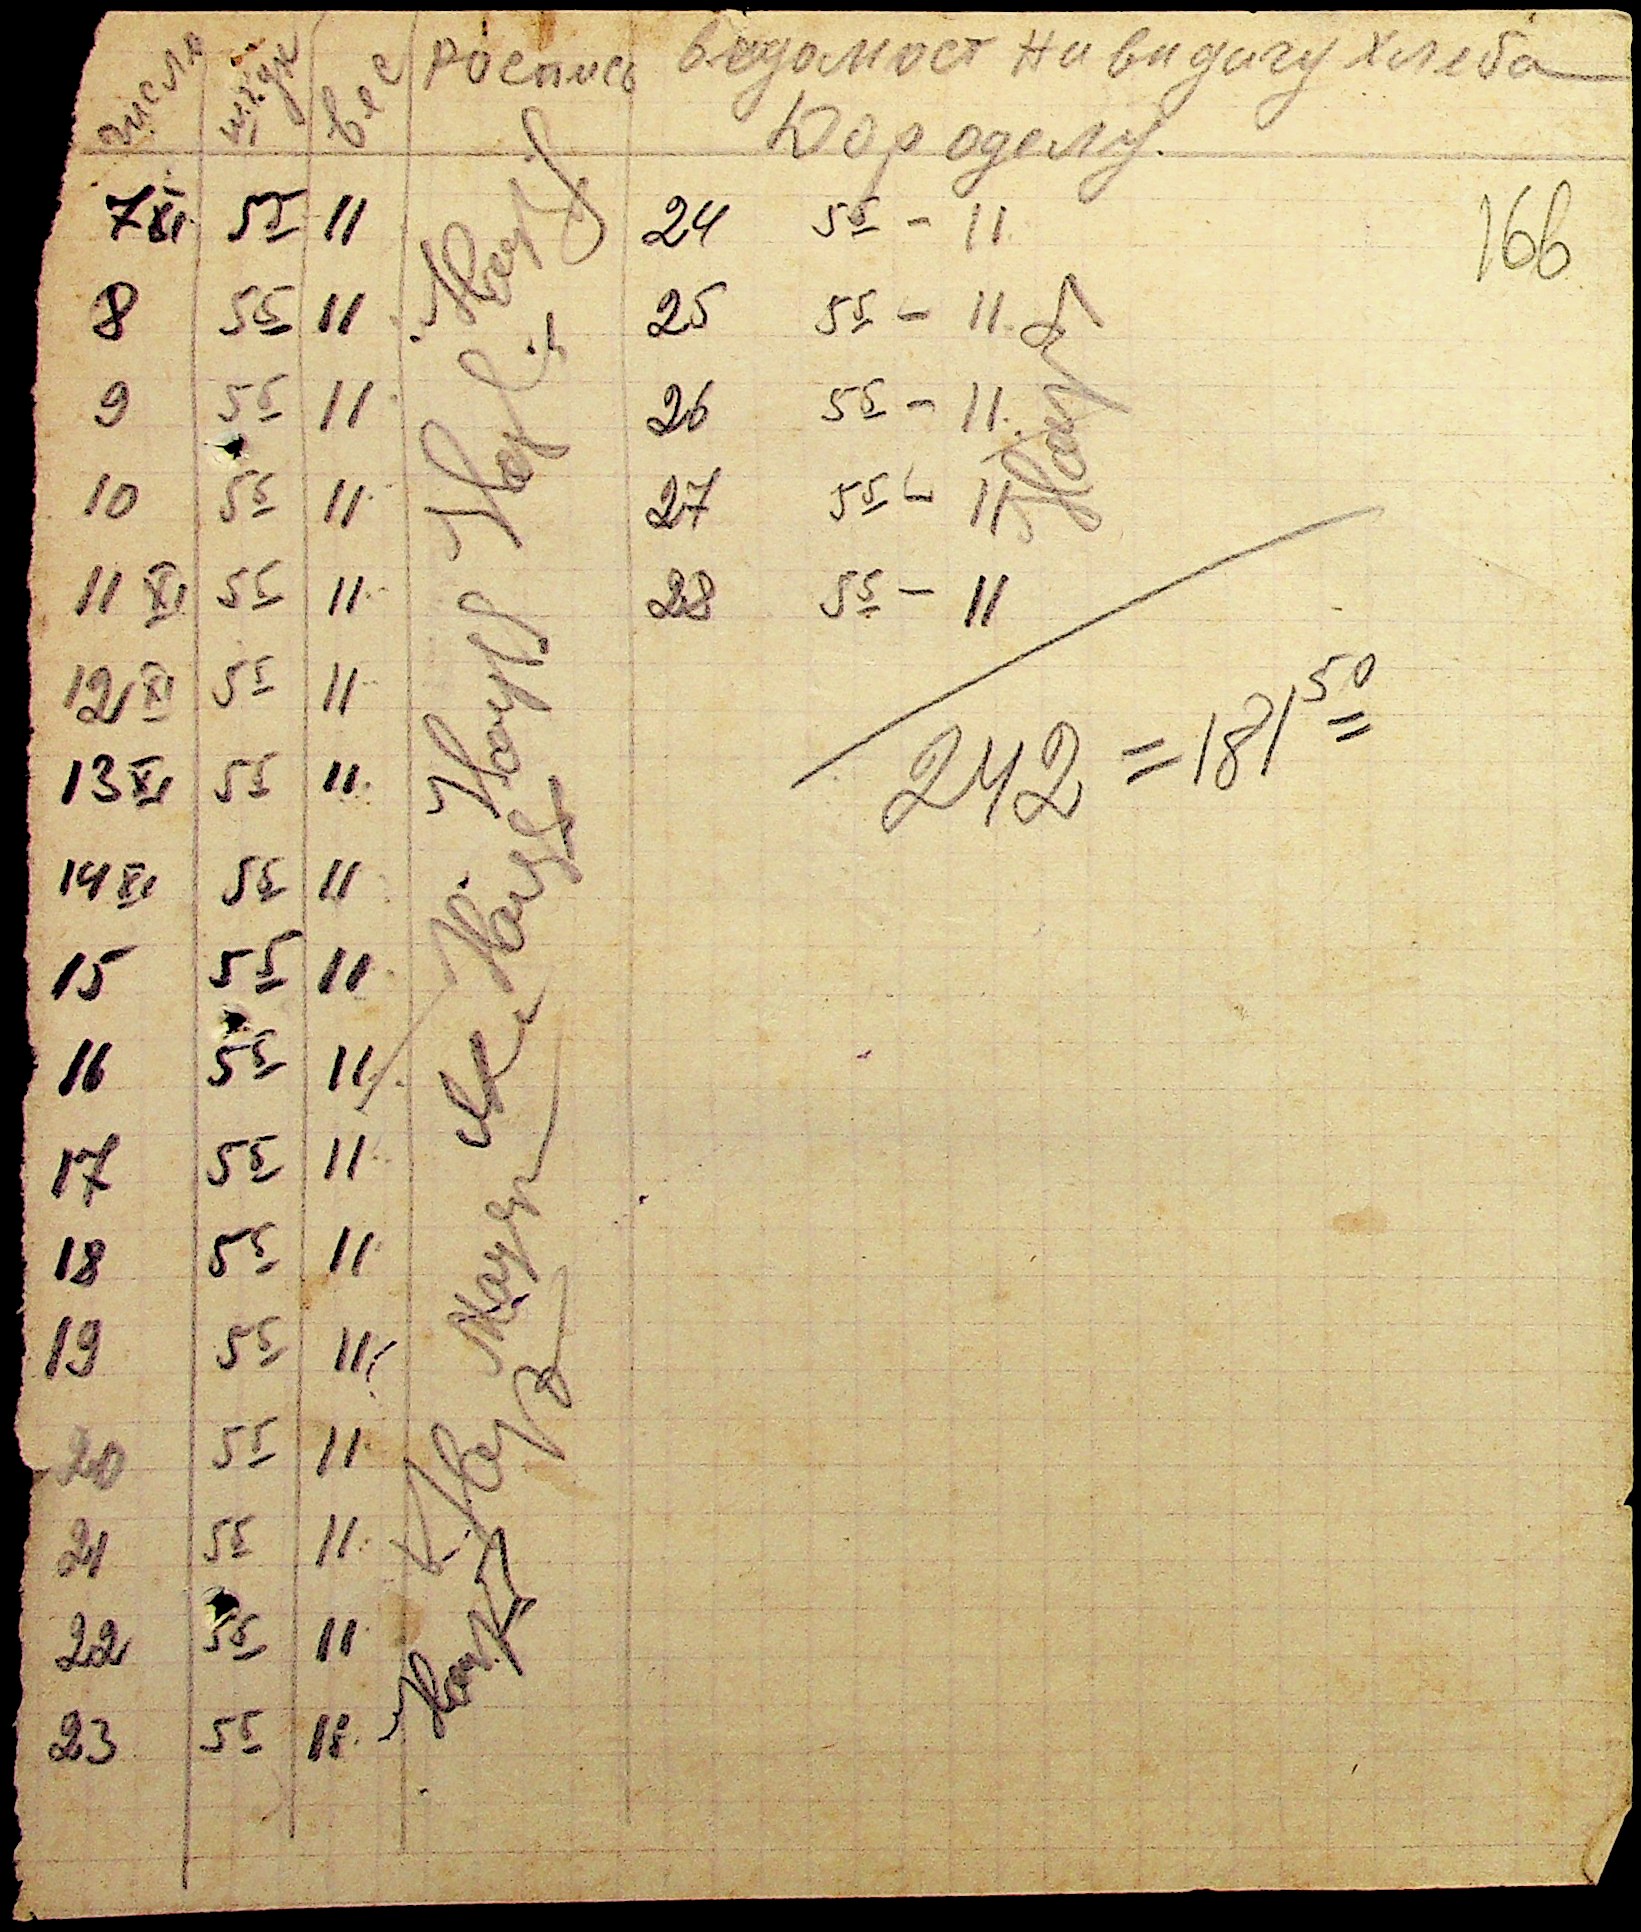 числа вес Роспись Ведомост На видачу хлеба
Дороделу.
166
7 XI 55 11
8 55 11
9 55 11
10 55 11
11 XI 55 11
12 XI 55 11
13 XI 55 11
14 XI 55 11
15 55 11
16 55 11
17 55 11
18 55 11
19 55 11
20 55 11
21 55 11
22 55 11
23 55 11
24 55 - 11
25 55 - 11
26 55 - 11
27 55 - 11
28 55 - 11
242 = 181 50